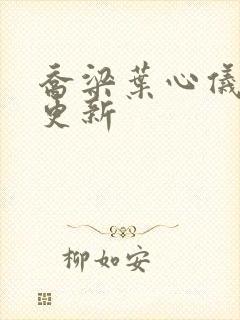 乔梁葉心儀
更新
柳如安